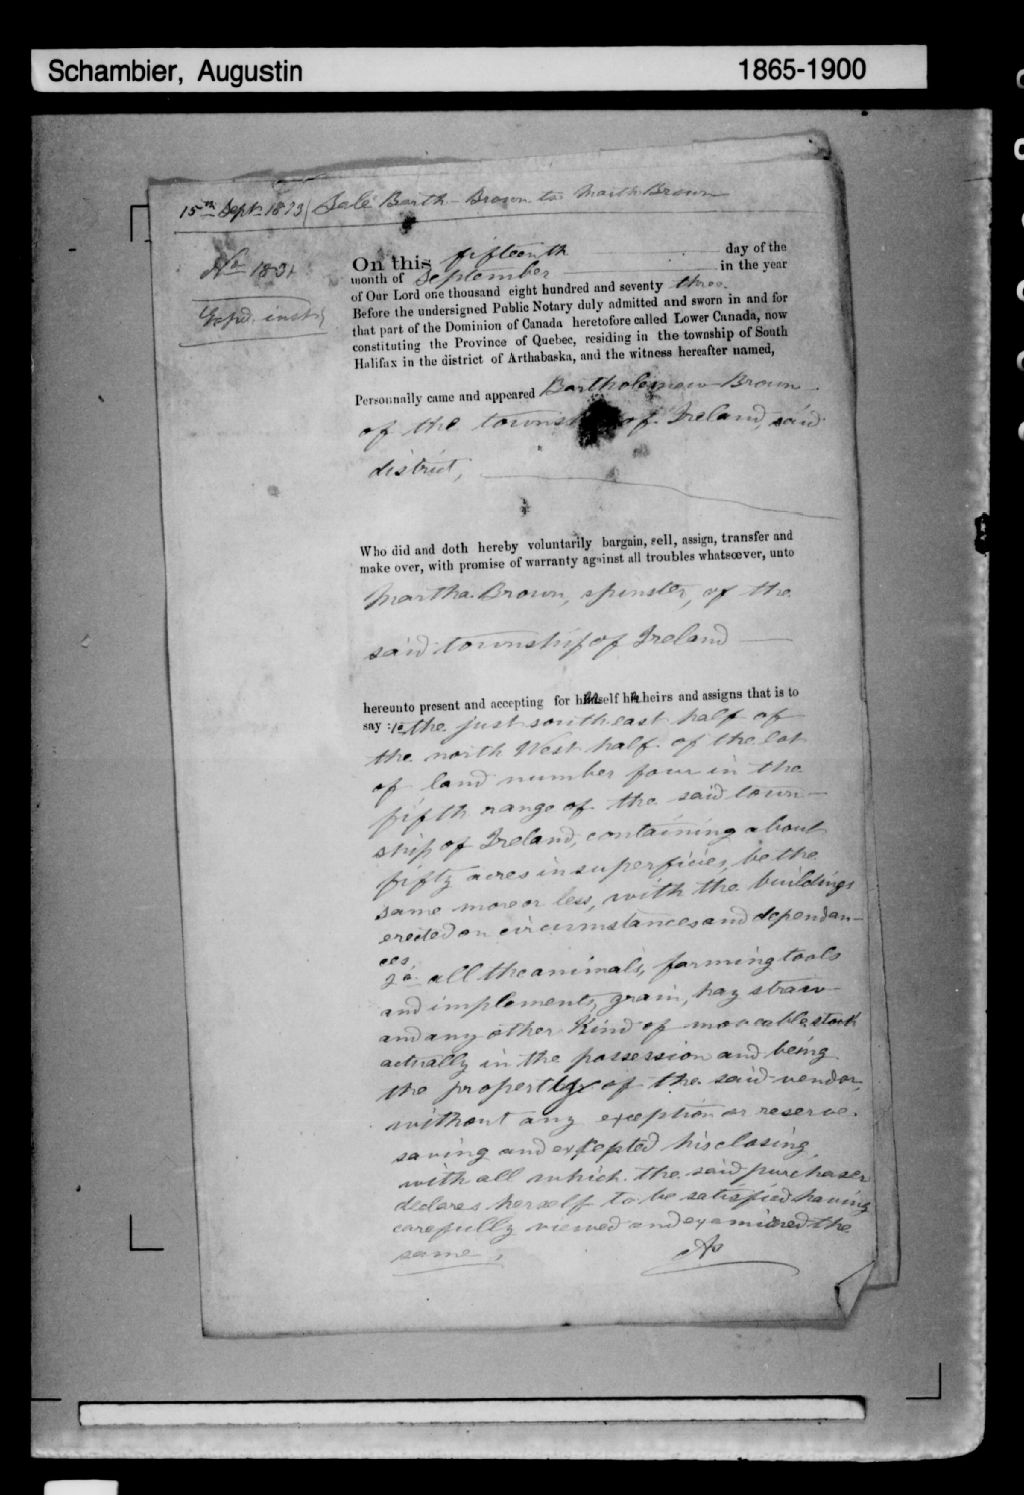 Schambier, Augustin 1865-1900
15th Septr 1873 / Sale Barth Brown to Marth Brown
No 1831
On this fifteenth day of the
month of September in the year
of Our Lord one thousand eight hundred and seventy three.
Before the undersigned Public Notary duly admitted and sworn in and for
that part of the Dominion of Canada heretofore called Lower Canada, now
constituting the Province of Quebec, residing in the township of South
Halifax in the district of Arthabaska, and the witness hereafter named,
Personnally came and appeared Bartholemew Brown
of the township of Ireland, said
district,
Who did and doth hereby voluntarily bargain, sell, assign, transfer and
make over, with promise of warranty against all troubles whatsœver, unto
Martha Brown, spinster, of the
said township of Ireland
hereunto present and accepting for herself her heirs and assigns that is to
say : 1o the just south east half of
the north West half of the lot
of land number four in the
fifth range of the said town-
ship of Ireland, containing about
fifty acres in superficies, be the
same more or less, with the buildings
erected on circumstances and dependan-
ces
2o all the animals, farming tools
and implements, grain, hay straw
and any other Kind of moveable stock
actually in the possession and being
the property of the said vendor,
without any exception or reserve.
saving and excepted his closing,
with all which the said purchaser
declares herself to be satisfied having
carefully viewed and examined the
same.
AS